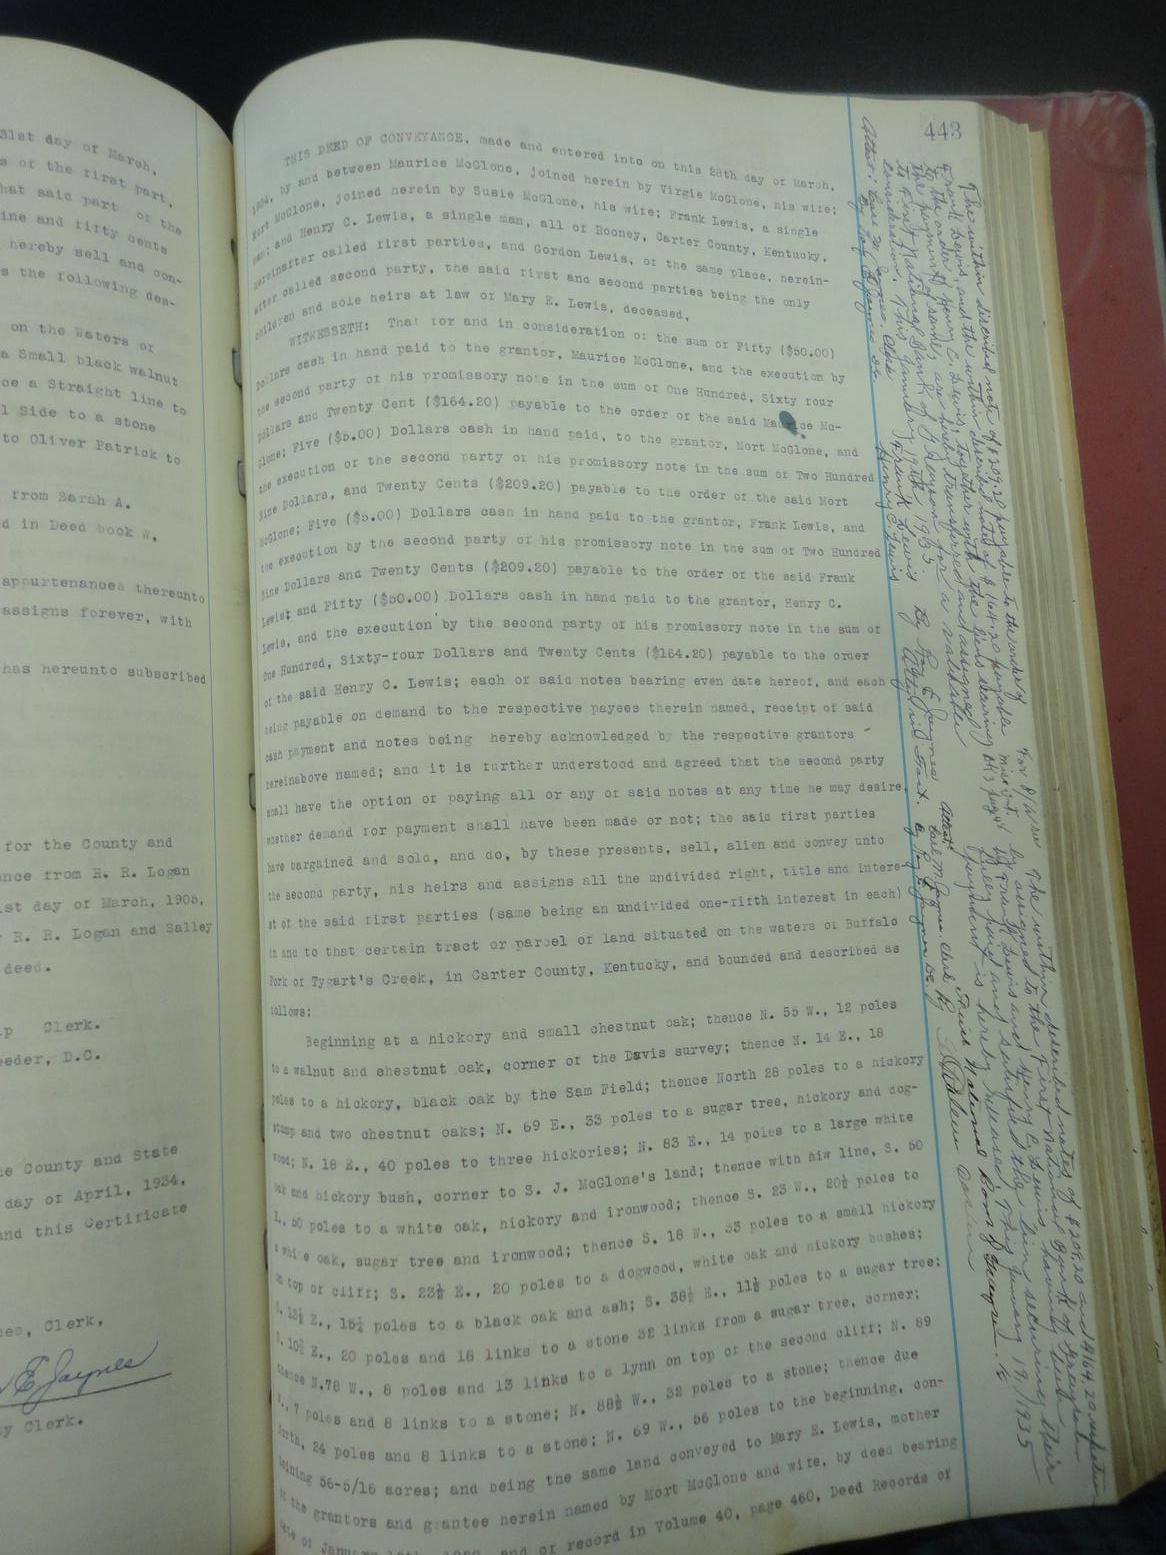 31st day of March,
s of the first part,
hat said part of the
ine and fifty cents
hereby sell and con-
s the following des-
on the Waters of
a Small black walnut
ce a Straight line to
l Side to a stone
to Oliver Patrick to
from Sarah A.
d in Deed book W.
appurtenances thereunto
assigns forever, with
has hereunto subscribed
for the County and
ance from R. R. Logan
1st day of March, 1905,
R. R. Logan and Salley
deed.
p Clerk.
eeder, D.C.
he County and State
day of April, 1934,
and this Certificate
es, Clerk,
E. Jaynes
ty Clerk.
443
THIS DEED OF CONVEYANCE, made and entered into on this 28th day of March,
1934, by and between Maurice McGlone, joined herein by Virgie McGlone, his wife;
Mort McGlone, joined herein by Susie McGlone, his wife; Frank Lewis, a single
man; and Henry C. Lewis, a single man, all of Rooney, Carter County, Kentucky,
hereinafter called first parties, and Gordon Lewis, of the same place, herein-
after called second party, the said first and second parties being the only
children and sole heirs at law of Mary E. Lewis, deceased,
WITNESSETH: That for and in consideration of the sum of Fifty ($50.00)
Dollars cash in hand paid to the grantor, Maurice McGlone, and the execution by
the second party of his promissory note in the sum of One Hundred, Sixty four
Dollars and Twenty Cent ($164.20) payable to the order of the said Maurice Mc-
Glone; Five ($5.00) Dollars cash in hand paid, to the grantor, Mort McGlone, and
the execution of the second party of his promissory note in the sum of Two Hundred
Nine Dollars, and Twenty Cents ($209.20) payable to the order of the said Mort
McGlone; Five ($5.00) Dollars cash in hand paid to the grantor, Frank Lewis, and
the execution by the second party of his promissory note in the sum of Two Hundred
Nine Dollars and Twenty Cents ($209.20) payable to the order of the said Frank
Lewis; and Fifty ($50.00) Dollars cash in hand paid to the grantor, Henry C.
Lewis, and the execution by the second party of his promissory note in the sum of
One Hundred, Sixty-four Dollars and Twenty Cents ($164.20) payable to the order
of the said Henry C. Lewis; each of said notes bearing even date hereof, and each
being payable on demand to the respective payees therein named, receipt of said
cash payment and notes being hereby acknowledged by the respective grantors -
hereinabove named; and it is further understood and agreed that the second party
shall have the option of paying all or any of said notes at any time he may desire,
whether demand for payment shall have been made or not; the said first parties
have bargained and sold, and do, by these presents, sell, alien and convey unto
the second party, his heirs and assigns all the undivided right, title and intere-
st of the said first parties (same being an undivided one-fifth interest in each)
in and to that certain tract or parcel of land situated on the waters of Buffalo
Fork of Tygart's Creek, in Carter County, Kentucky, and bounded and described as
follows:
Beginning at a hickory and small chestnut oak; thence N. 55 W., 12 poles
to a walnut and chestnut oak, corner of the Davis survey; thence N. 14 E., 18
poles to a hickory, black oak by the Sam Field; thence North 28 poles to a hickory
stump and two chestnut oaks; N. 69 E., 33 poles to a sugar tree, hickory and dog-
wood; N. 18 E., 40 poles to three hickories; N. 83 E., 14 poles to a large white
oak and hickory bush, corner to S. J. McGlone's land; thence with hiw line, S. 50
E., 50 poles to a white oak, hickory and ironwood; thence S. 23 W., 20½ poles to
a white oak, sugar tree and ironwood; thence S. 18 W., 33 poles to a small hickory
on top of cliff; S. 23½ E., 20 poles to a dogwood, white oak and hickory bushes;
S. 13½ E., 15½ poles to a black oak and ash; S. 38½ E., 11½ poles to a sugar tree;
S. 10½ E., 20 poles and 18 links to a stone 32 links from a sugar tree, corner;
thence N.78 W., 8 poles and 13 links to a lynn on top of the second cliff; N. 89
W., 7 poles and 8 links to a stone; N. 88½ W., 32 poles to a stone; thence due
North, 24 poles and 8 links to a stone; N. 69 W., 56 poles to the beginning, con-
taining 56-5/16 acres; and being the same land conveyed to Mary E. Lewis, mother
of the grantors and grantee herein named by Mort McGlone and wife, by deed bearing
date of January and of record in Volume 40, page 460, Deed Records of
The within described note of $209.20 payable to the order of
Frank Lewis, and the within described note of $164.20 payable
to the order of Henry C. Lewis, together with the liens securing
the payment of same, are hereby transferred and assigned
to First National Bank of Grayson for a valuable
consideration. This January 19th 1935
Frank Lewis
Henry C. Lewis
By Roy E. Jaynes
For B/W see
The within described notes of $209.20 and $164.20 respectively
assigned to the First National Bank of Grayson
by Frank Lewis and Henry C. Lewis having been
fully paid and satisfied the lien securing their
payment is hereby released, This January 19, 1935
First National Bank of Grayson